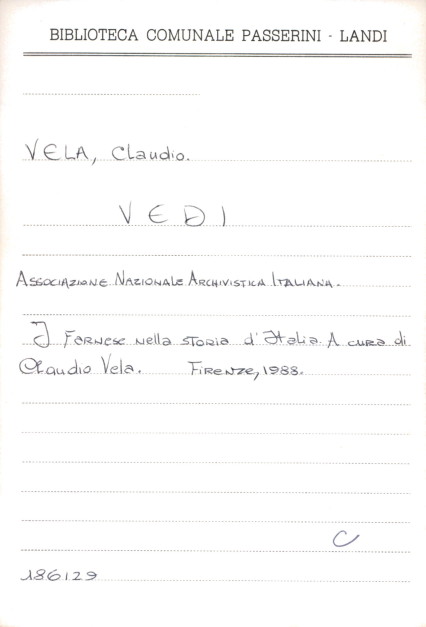 BIBLIOTECA COMUNALE PASSERINI - LANDI
VELA, Claudio.
VEDI
ASSOCIAZIONE NAZIONALE ARCHIVISTICA ITALIANA.
I FARNESE nella storia d'Italia. A cura di
Claudio Vela. Firenze, 1988.
C
186129